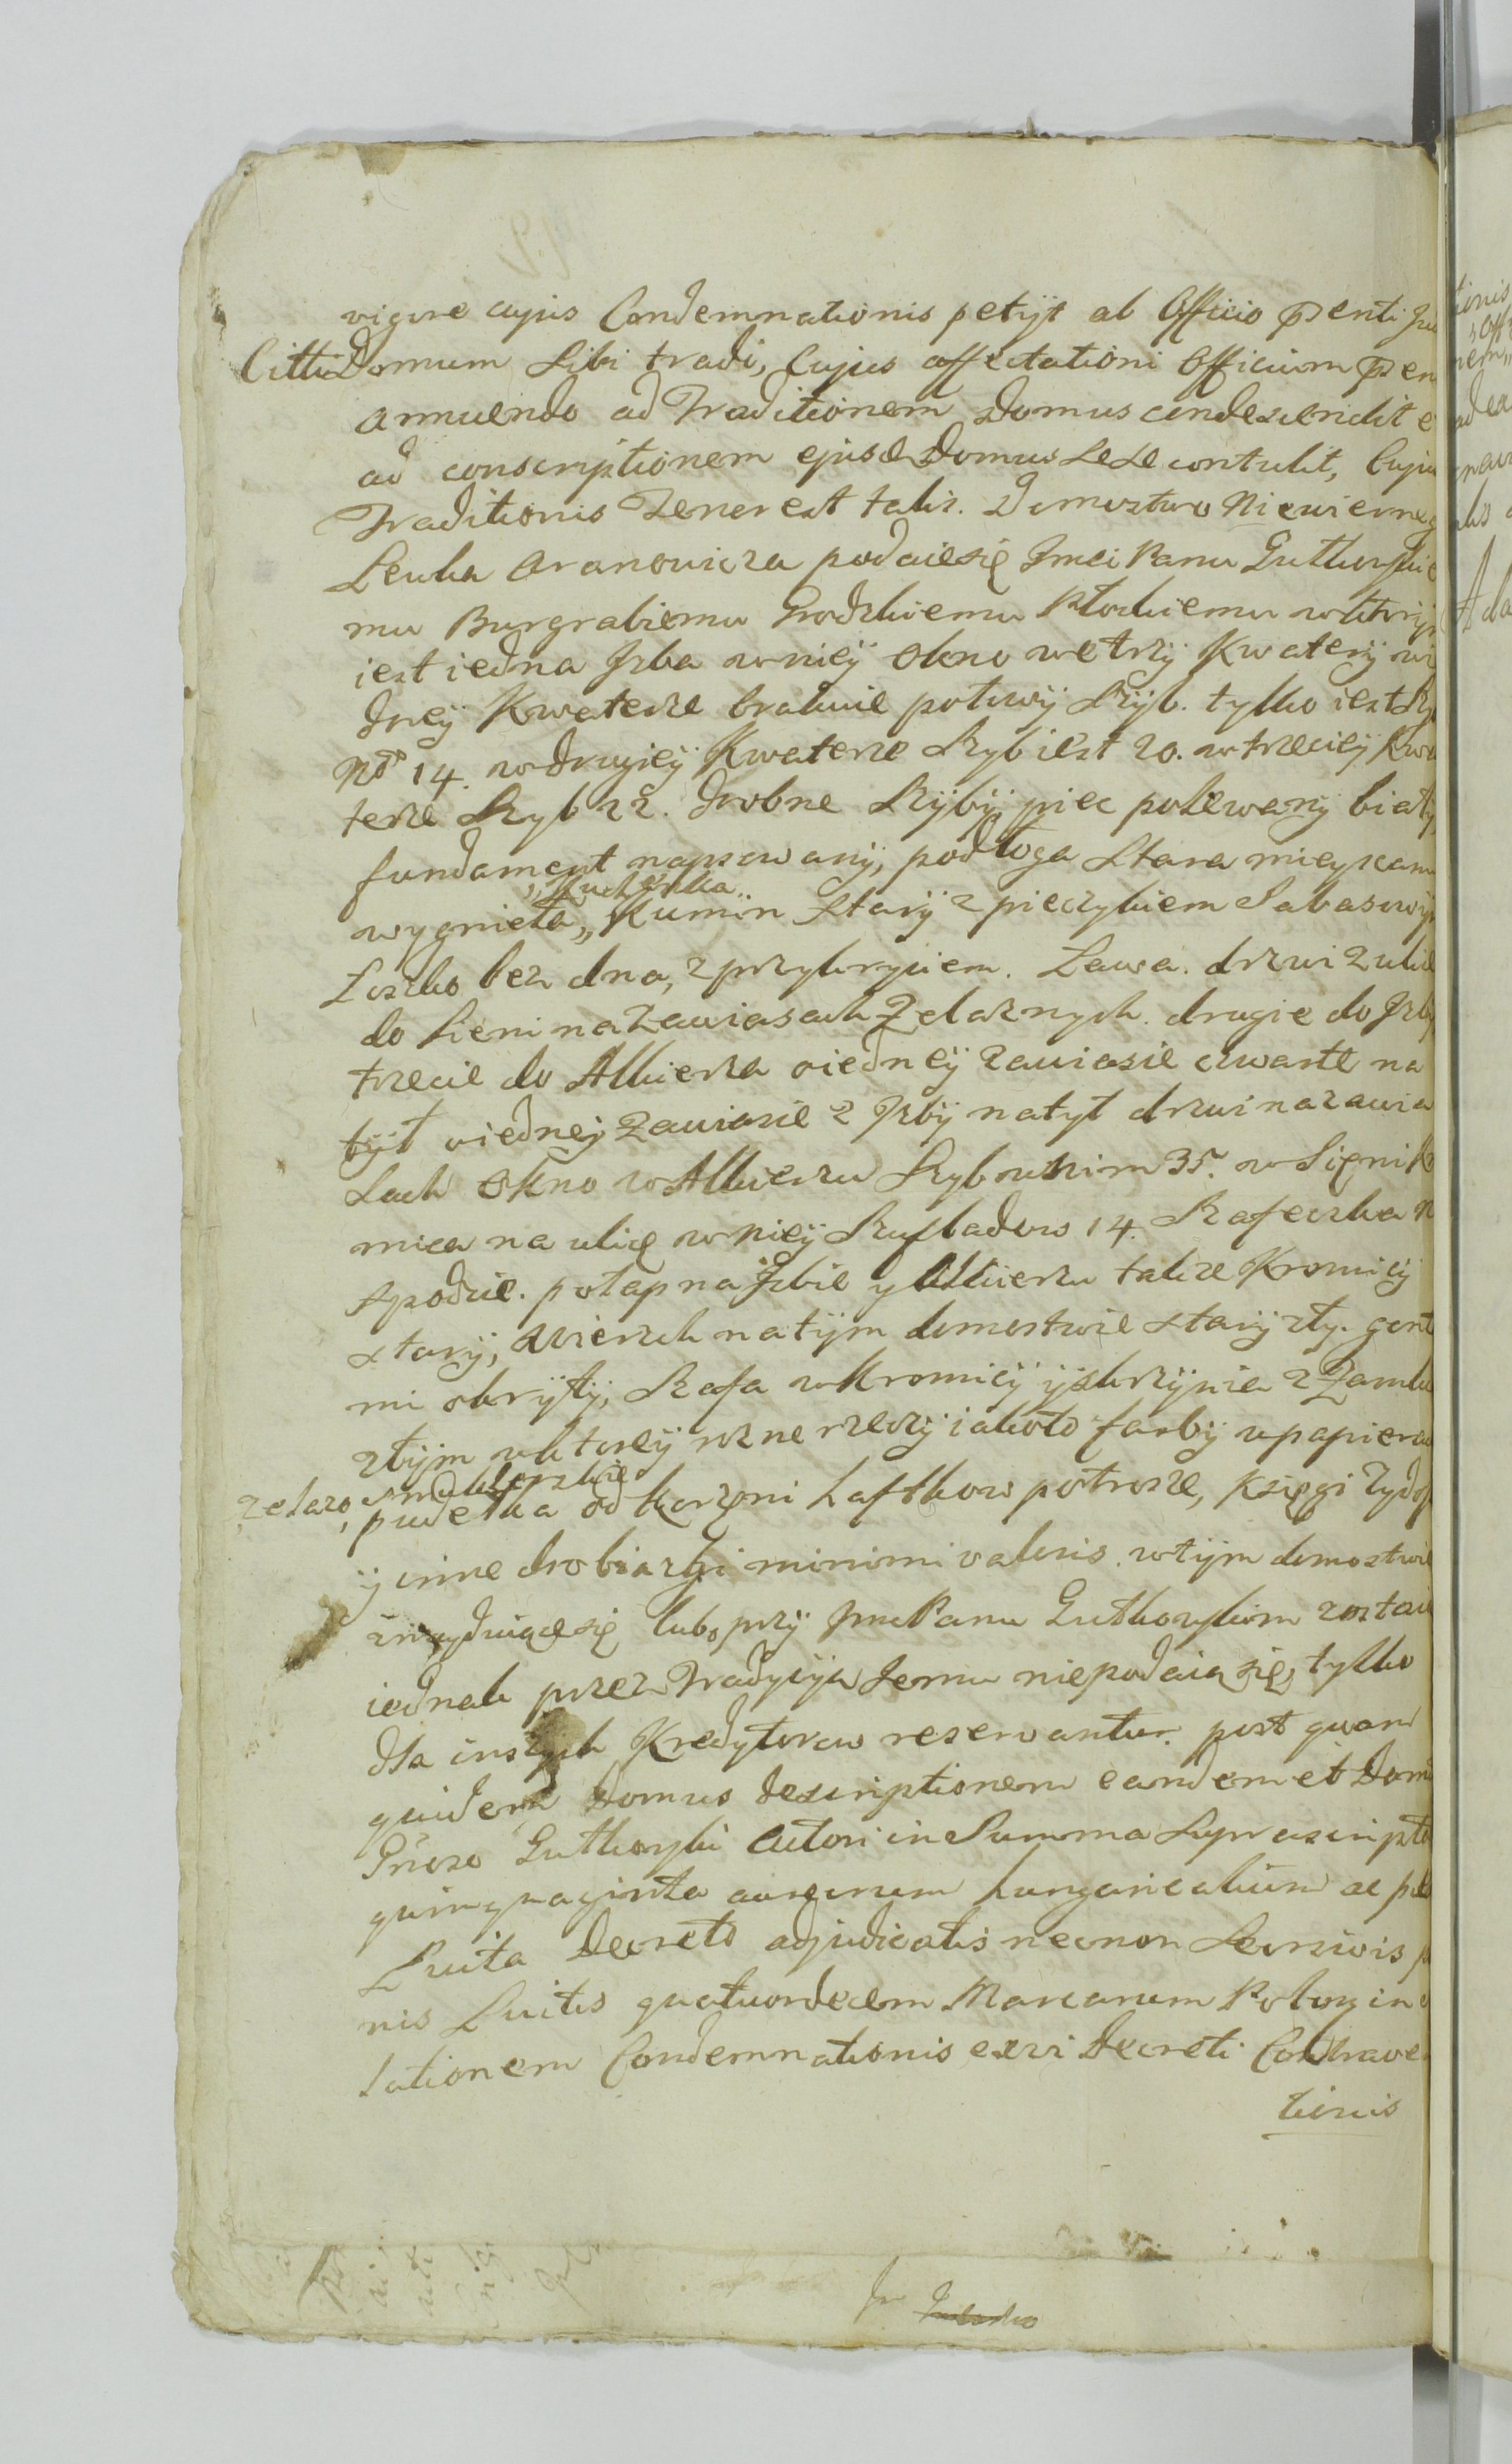 vigore cujus Condemnationis petÿt ab Officio
Citti Domum Sibi tradi, Cujus affectationi Officium
annuendo ad Traditionem Domus condescendit e
ad conscriptionem ejusd Domus sese contulit, Cuju
Traditionis Tenor est talis. Domostwo Niewierneg
Lewka Aranowicza podaie się Jmci Panu Gutkowskie
mu Burgrabiemu Grodzkiemu Płockiemu wktory
iest iedna Jzba wnieÿ Okno wetrzÿ Kwaterÿ wi
dneÿ Kwaterze brakuie połowÿ szÿb. tylko iest Sz
Nro 14. wdrugieÿ Kwaterze Szyb iest 20. wtrzecieÿ Kwa
terze Szyb 22. drobne Szÿbÿ, piec polewanÿ białÿ
fundament napsowanÿ, podłoga stara mieyscam
wygnieła,, Kumin starÿ z pieczykiem
,,Kuchenka,,
Łoszko bez dna, z przykryciem. Ława. drzwi z ulic
do Sieni na Zawiasach Zelaznych. drugie do Jzbÿ
trzecie do Alkierza oiedneÿ zawiasie czwarte na
tÿł oiedneÿ Zawiasie z Jzbÿ natył drzwi nazawia
sach Okno w Alkierzu Szyb wnim 35. w Sięni K
mica na ulicę wnieÿ Szufladow 14. Szafeczka n
spodzie. połap na Jzbie y Alkierzu także Kromicÿ
starÿ, Wierzch natÿm domostwie starÿ złÿ. gont
mi okrÿtÿ, Szafa w Kromicÿ ÿ skrzÿnia z Zamk
złÿm wktoreÿ rozne rzeczÿ iakoto farbÿ wpapiera
,zelazo, smuklerskie
pudełka od Korzeni haftkow potrosze, Księgi Zydo
ÿ inne drobiazgi minimi valoris. wtÿm domostwie
znayduiące się lubo przÿ Jmc Panu Gutkowskim zostai
iednak przez Tradycÿą Jemu niepodaią się, tylko
dla inszych Kredytorow reservantur. post quam
quidem Domus descriptionem eandemet Dom
Gnoso Gutkowski Actori in Summa Suprascripta
quinquaginta aureorum hungaricalium ac
Luita Decreto adjudicatis necnon
nis Luitis quatuordecem Marcarum Polon in
lationem Condemnationis exvi Decreti Contrave
tionis